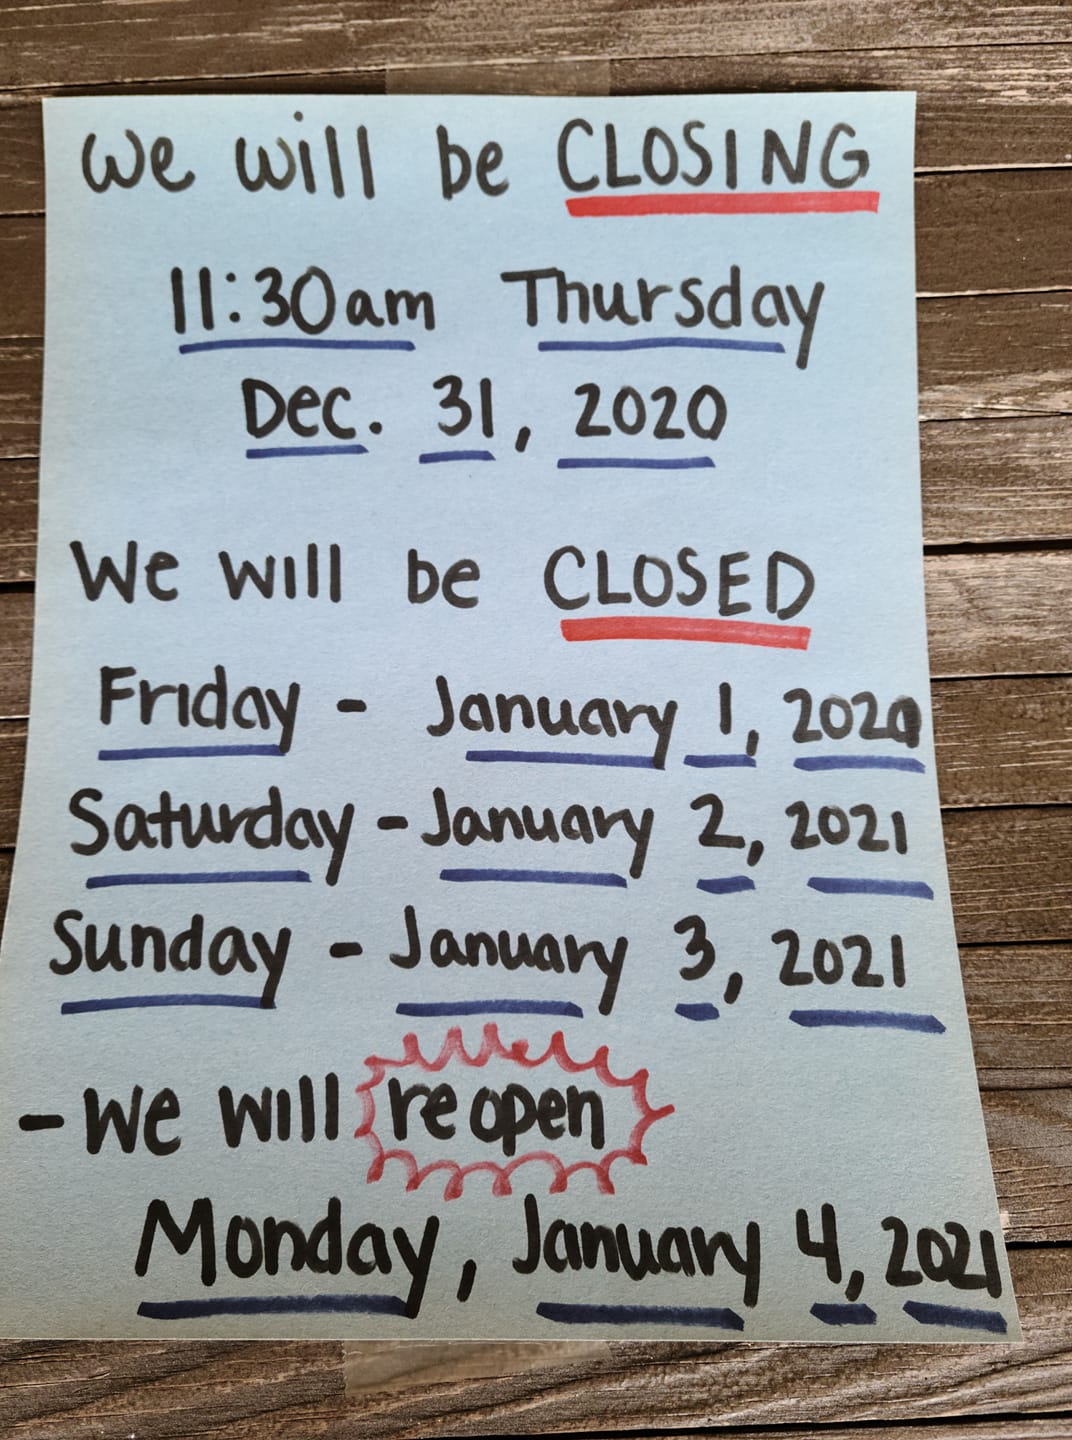 We will be CLOSING
11:30am Thursday
Dec. 31, 2020
We will be CLOSED
Friday - January 1,
Saturday - January 2, 2021
Sunday - January 3, 2021
- We will reopen
Monday, January 4, 2021